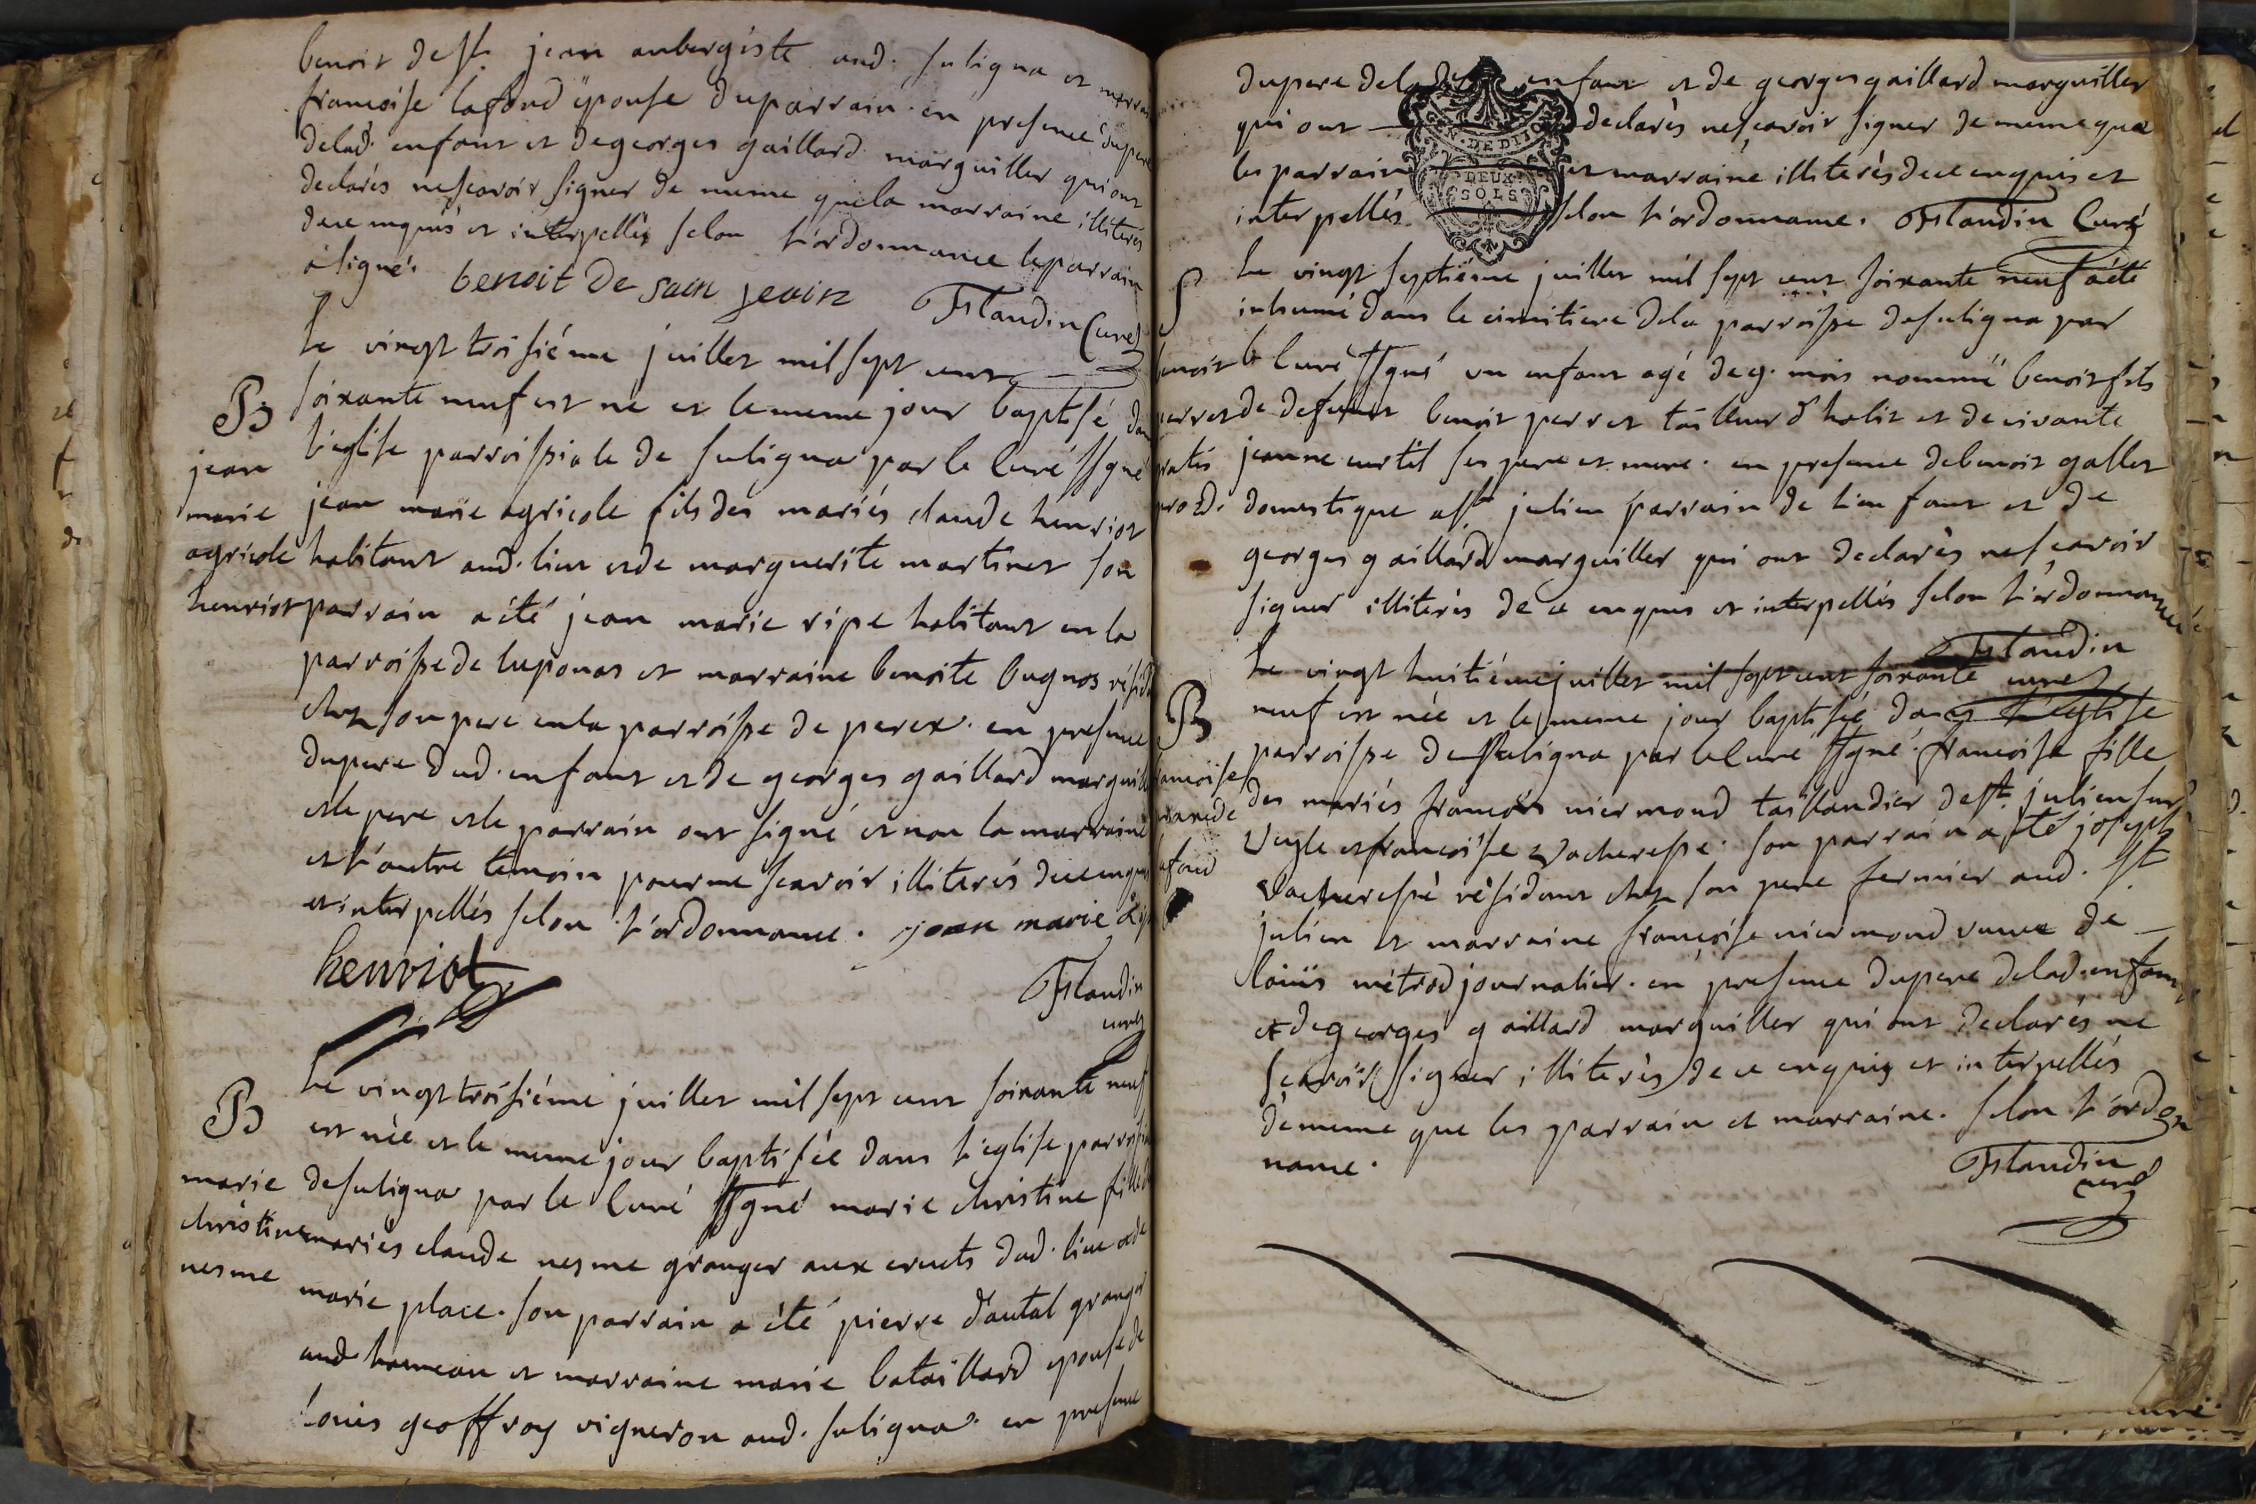 benoit de st. jean aubergiste aud. suligna et marrai
francoise lafond épouse du parrain. en presence du pere
de lad. enfant et de georges gaillard marguiller qui ont
declarés ne scavoir signer de meme que la marraine illiterés
de ce enquis et interpellés selon l'ordonnance le parrain
a signé. benoit De sain jean Flandin Curé
B
jean
marie
agricole
henriot
Le vingt troisiéme juillet mil sept cent
soixante neuf est né et le meme jour baptisé dan
l'eglise parroissiale de suligna par le Curé ssgné
jean marie agricole fils des mariés claude henriot
habitant aud. lieu et de marguerite martinet son
parrain a été jean marie ripe habitant en la
parroisse de luponas et marraine benoite bugnos résid
chez son pere en la parroisse de perex. en presence
du pere dud. enfant et de georges gaillard marguill
et le pere et le parrain ont signé et non la marraine
et l'autre temoin pour ne scavoir illiterés de ce enquis
et interpellés selon l'ordonnance. jean marie rip
henriot
Flandin
curé
B
marie
christine
nesme
Le vingt troisiéme juillet mil sept cent soixante neuf
est née et le meme jour baptisée dans l'eglise parroissi
de suligna par le Curé ssgné marie christine fille d
mariés claude nesme granger aux cruets dud. lieu et de
marie place. son parrain a été pierre dautal granger
aud. hameau et marraine marie bataillard epouse de
Louis geoffroy vigneron aud. suligna. en presence
du pere de lad. enfant et de georges gaillard marguiller
qui ont declarés ne scavoir signer de meme que
les parrain et marraine illiterés de ce enquis et
interpellés selon l'ordonnance. Flandin Curé
GEN. DE DIJON
DEUX
SOLS
S
benoit
perret
gratis
pro d.
Le vingt septiéme juillet mil sept cent soixante neuf a été
inhumé dans le cimitiere de la parroisse de suligna par
le Curé ssgné un enfant agé de 9. mois nommé benoit fils
de defunt benoit perret tailleur d'habit et de vivante
jeanne curtil ses pere et mere. en presence de benoit gallet
domestique a st. julien parrain de l'enfant et de
georges gaillard marguiller qui ont declarés ne scavoir
signer illiterés de ce enquis et interpellés selon l'ordonnance
Flandin
curé
B
rancoise
afond
Le vingt huitiéme juillet mil sept cent soixante
neuf est née et le meme jour baptisée dans l'eglise
parroisse de suligna par le Curé ssgné. francoise fille
des mariés francois niermond taillandier de st. julien sur
Veyle et francoise Vacheresse. son parrain a été joseph
Vacheresse résidant chez son pere fermier aud. st.
julien et marraine francoise niermond veuve de
loüis métrod journalier. en presence du pere de lad. enfant
et de georges gaillard marguiller qui ont declarés ne
scavoir signer illiterés de ce enquis et interpellés
de meme que les parrain et marraine. selon l'ordon
nance.
Flandin
curé